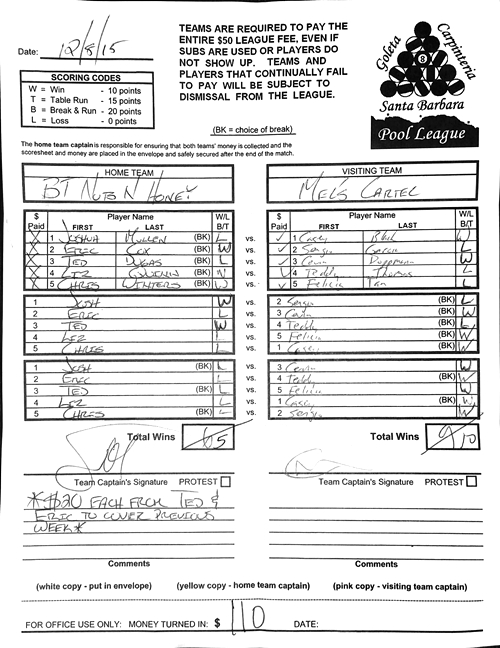 Date: 12/8/15
TEAMS ARE REQUIRED TO PAY THE
ENTIRE $50 LEAGUE FEE, EVEN IF
SUBS ARE USED OR PLAYERS DO
NOT SHOW UP. TEAMS AND
PLAYERS THAT CONTINUALLY FAIL
TO PAY WILL BE SUBJECT TO
DISMISSAL FROM THE LEAGUE.
(BK = choice of break)
Goleta
Carpinteria
8
Santa Barbara
Pool League
SCORING CODES
W = Win - 10 points
T = Table Run - 15 points
B = Break & Run - 20 points
L = Loss - 0 points
The home team captain is responsible for ensuring that both teams' money is collected and the
scoresheet and money are placed in the envelope and safely secured after the end of the match.
HOME TEAM
BT NUTS N HONEY
VISITING TEAM
MEL'S CARTEL
$ Paid Player Name FIRST LAST W/L B/T
X 1 JOSHUA MULLEN (BK) L vs.
X 2 ERIC COX (BK) W vs.
X 3 TED DUGAS (BK) L vs.
X 4 LIZ (BK) W vs.
X 5 CHRIS WINTERS (BK) W vs.
$ Paid Player Name FIRST LAST W/L B/T
✓ 1 Casey W
✓ 2 Sergio L
✓ 3 Cavin W
✓ 4 Teddy Thomas L
✓ 5 Felicia L
1 JOSH W vs. 2 Sergio (BK) L
2 ERIC L vs. 3 Cavin (BK) W
3 TED W vs. 4 Teddy (BK) L
4 LIZ L vs. 5 Felicia (BK) W
5 CHRIS L vs. 1 Casey (BK) W
1 JOSH (BK) L vs. 3 Cavin W
2 ERIC L vs. 4 Teddy (BK) W
3 TED (BK) L vs. 5 Felicia W
4 LIZ L vs. 1 Casey (BK) W
5 CHRIS (BK) L vs. 2 Sergio W
Total Wins 5
Total Wins 10
Team Captain's Signature PROTEST
Team Captain's Signature PROTEST
*$20 EACH FROM TED &
ERIC TO COVER PREVIOUS
WEEK*
Comments
Comments
(white copy - put in envelope) (yellow copy - home team captain) (pink copy - visiting team captain)
FOR OFFICE USE ONLY: MONEY TURNED IN: $ 110 DATE: